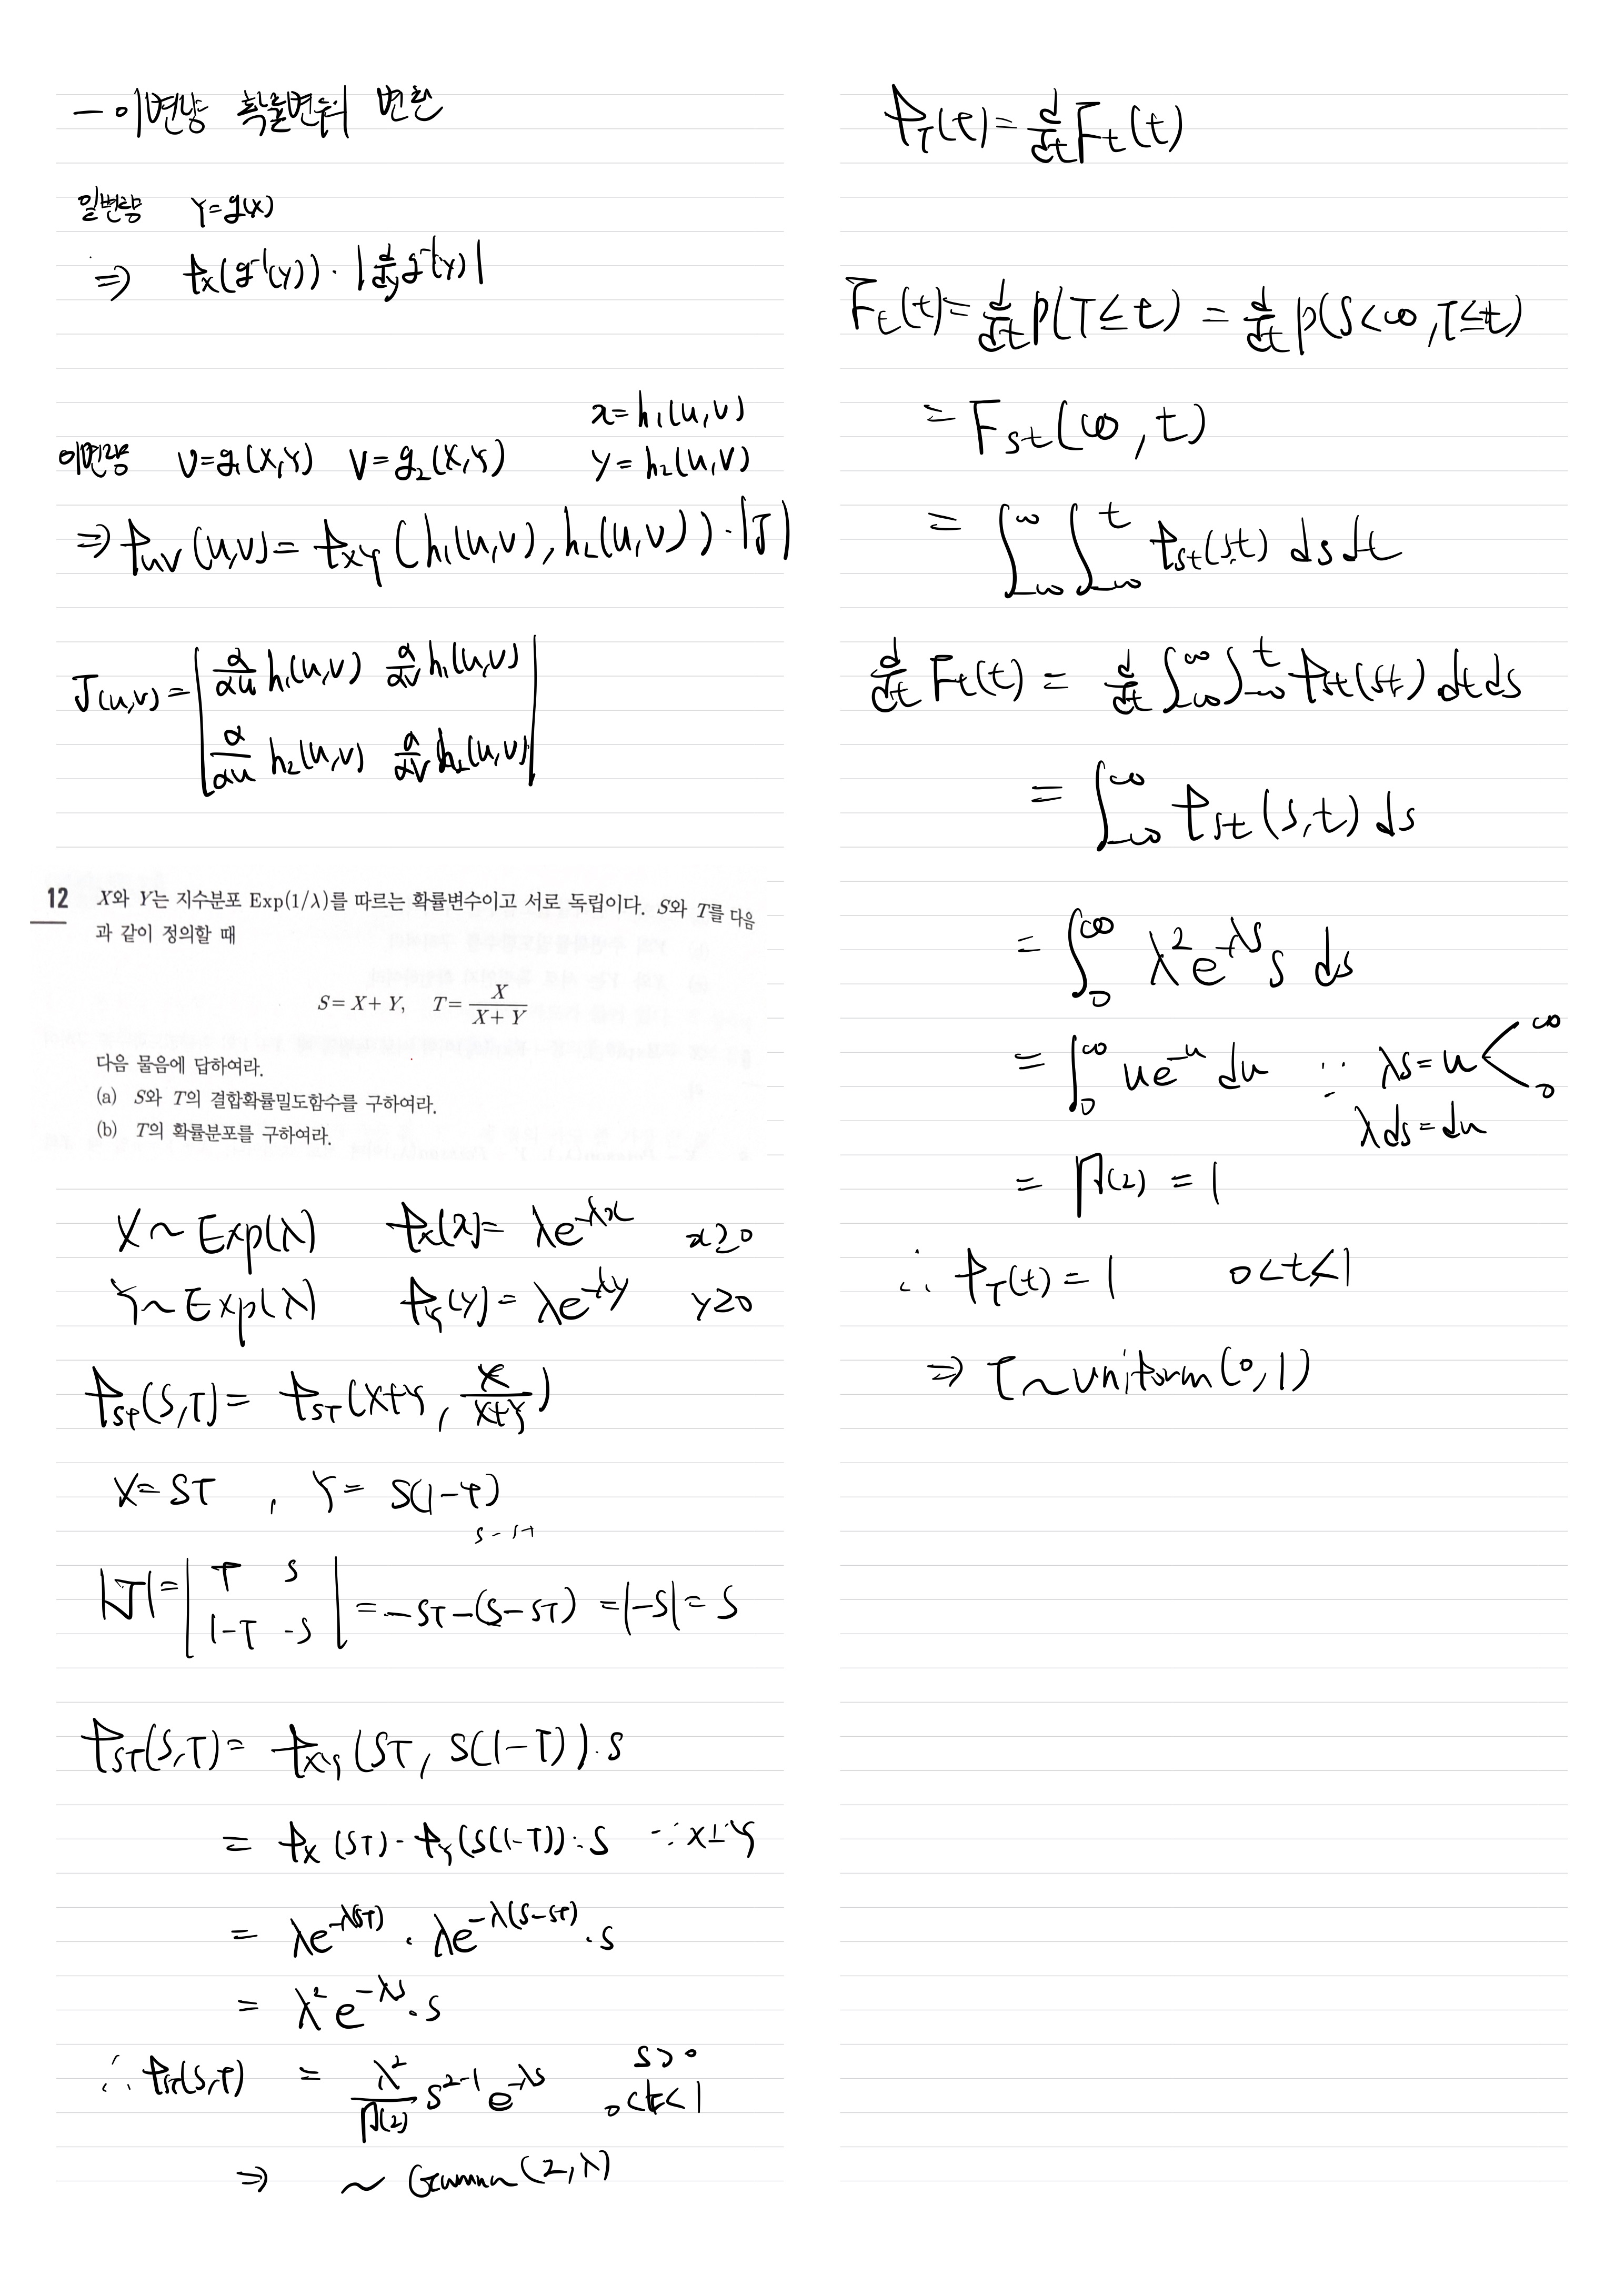 - 이변량 확률변수의 변환
일변량 Y=g(X)
⇒ f_X(g^{-1}(y)) · |d/dy g^{-1}(y)|
x=h_1(u,v)
이변량 U=g_1(X,Y) V=g_2(X,Y) y=h_2(u,v)
⇒ f_{UV}(u,v) = f_{XY}(h_1(u,v), h_2(u,v)) · |J|
J(u,v) = | ∂/∂u h_1(u,v) ∂/∂v h_1(u,v) |
| ∂/∂u h_2(u,v) ∂/∂v h_2(u,v) |
12 X와 Y는 지수분포 Exp(1/λ)를 따르는 확률변수이고 서로 독립이다. S와 T를 다음
과 같이 정의할 때
S = X + Y, T = X/(X + Y)
다음 물음에 답하여라.
(a) S와 T의 결합확률밀도함수를 구하여라.
(b) T의 확률분포를 구하여라.
X ~ Exp(λ) f_X(x) = λe^{-λx} x≥0
Y ~ Exp(λ) f_Y(y) = λe^{-λy} y≥0
f_{ST}(S,T) = f_{ST}(X+Y, X/(X+Y))
X = ST , Y = S(1-T)
S-ST
|J| = | T S |
| 1-T -S | = -ST-(S-ST) = |-S| = S
f_{ST}(S,T) = f_{XY}(ST, S(1-T)) · S
= f_X(ST) · f_Y(S(1-T)) · S ∵ X⊥Y
= λe^{-λ(ST)} · λe^{-λ(S-ST)} · S
= λ^2 e^{-λS} · S
∴ f_{ST}(S,T) = λ^2/Γ(2) S^{2-1} e^{-λS} S>0
0<t<1
⇒ ~ Gamma(2,λ)
f_T(t) = d/dt F_t(t)
F_t(t) = d/dt P(T≤t) = d/dt P(S<∞, T≤t)
= F_{st}(∞, t)
= ∫_{-∞}^{∞} ∫_{-∞}^{t} f_{st}(s,t) ds dt
d/dt F_t(t) = d/dt ∫_{-∞}^{∞} ∫_{-∞}^{t} f_{st}(s,t) dt ds
= ∫_{-∞}^{∞} f_{st}(s,t) ds
= ∫_0^∞ λ^2 e^{-λs} s ds
= ∫_0^∞ u e^{-u} du ∵ λs = u < ∞ 0
λ ds = du
= Γ(2) = 1
∴ f_T(t) = 1 0<t<1
⇒ T ~ uniform(0,1)